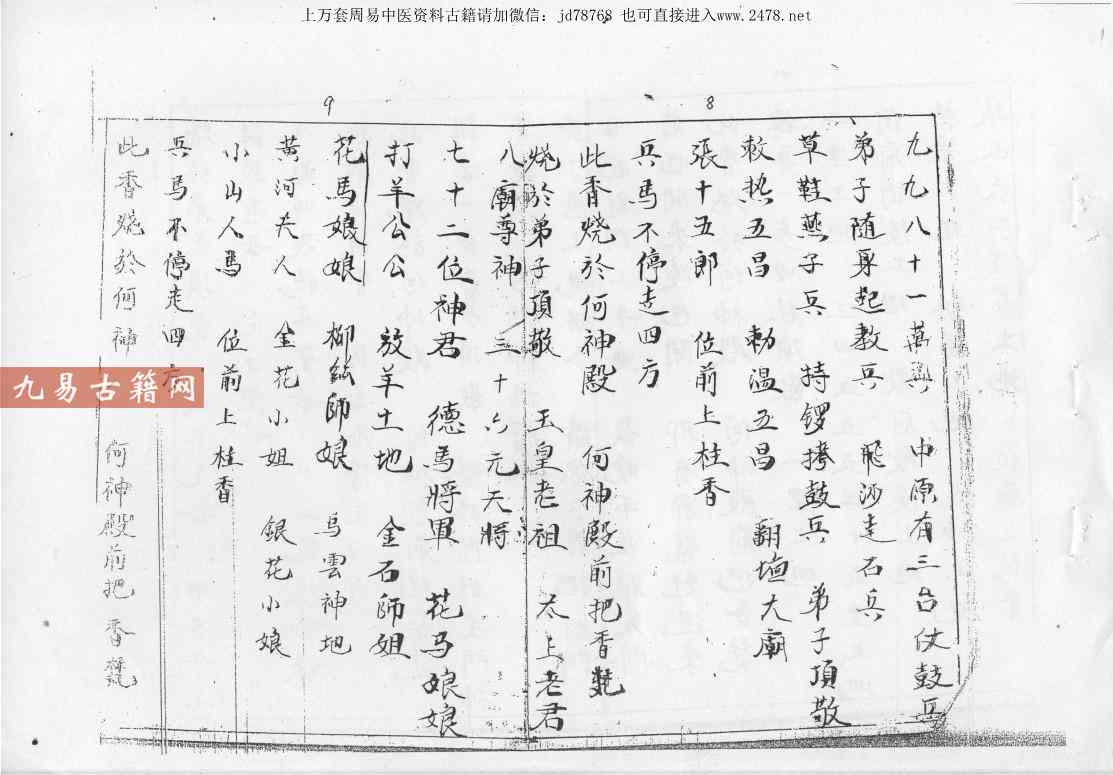 上万套周易中医资料古籍请加微信：jd78768 也可直接进入www.2478.net
8
九九八十一萬兵 中原有三台仗鼓兵
弟子随身起教兵 飛沙走石兵
草鞋燕子兵 持锣擂鼓兵 弟子頂敬
敕热五昌 勅温五昌 翻壇大廟
張十五郎 位前上柱香
兵馬不停走四方
此香烧於何神殿 何神殿前把香
9
烧於弟子頂敬 玉皇老祖 太上老君
八廟尊神 三十六元天將
七十二位神君 德馬將軍 花马娘娘
打羊公公 放羊土地 金石師姐
花馬娘娘 柳絲師娘 烏雲神地
黄河夫人 金花小姐 銀花小娘
小山人馬 位前上柱香
兵马不停走四方
此香烧於何神 何神殿前把香
九易古籍网